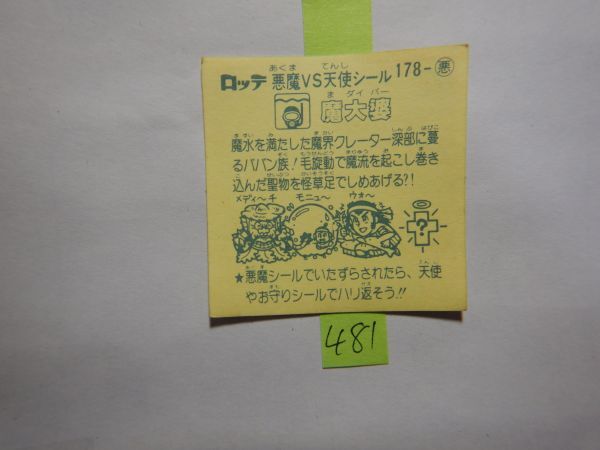 ロッテ 悪魔VS天使シール 178-悪
魔大婆
魔水を満たした魔界クレーター深部に蔓
るババン族!毛旋動で魔流を起こし巻き
込んだ聖物を怪草足でしめあげる?!
メディ〜チ モニュ〜 ウォ〜
?
★悪魔シールでいたずらされたら、天使
やお守りシールでハリ返そう!!
481